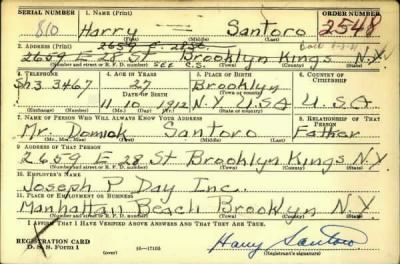 SERIAL NUMBER 1. NAME (Print) ORDER NUMBER
810 Harry — Santoro 2548
(First) (Middle) (Last)
2. ADDRESS (Print)
2659 E 28 St Brooklyn Kings N.Y
SEE C.S.
(Number and street or R. F. D. number) (Town) (County) (State)
3. TELEPHONE 4. AGE IN YEARS 5. PLACE OF BIRTH 6. COUNTRY OF CITIZENSHIP
Sh.3 3467 27 Brooklyn
DATE OF BIRTH
11-10-1912 N.Y U.S.A U.S.A.
(Exchange) (Number) (Mo.) (Day) (Yr.) (State or country)
7. NAME OF PERSON WHO WILL ALWAYS KNOW YOUR ADDRESS 8. RELATIONSHIP OF THAT PERSON
Mr. Domiok Santoro Father
(Mr., Mrs., Miss) (First) (Middle) (Last)
9. ADDRESS OF THAT PERSON
2659 E 28 St Brooklyn Kings N.Y
(Number and street or R. F. D. number) (Town) (County) (State)
10. EMPLOYER'S NAME
Joseph P Day Inc.
11. PLACE OF EMPLOYMENT OR BUSINESS
Manhattan Beach Brooklyn N.Y
(Number and street or R. F. D. number) (Town) (County) (State)
I AFFIRM THAT I HAVE VERIFIED ABOVE ANSWERS AND THAT THEY ARE TRUE.
REGISTRATION CARD
D. S. S. Form 1 16—17105 Harry Santoro
(Registrant's signature)